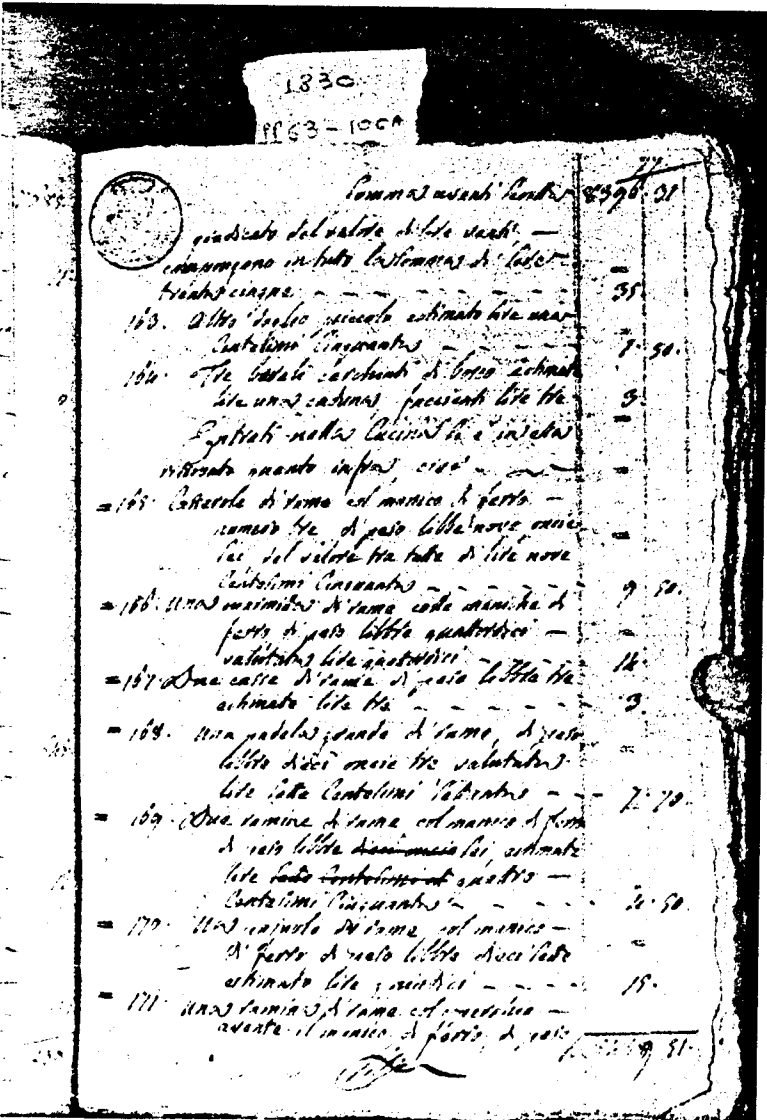 1830
ff 63 - 100
77
Somma avanti 8396. 31
giudicato del valore di lire venti, —
compongono in tutto la somma di lire —
trenta cinque - - - 35
163. Altro piccolo estimato lire una
Centesimi Cinquanta - - - 1. 50.
164. Tre di estimati
lire una caduna, facienti lire tre 3.
Entrati nella Cucina si è in essa
ritrovato quanto infra, cioè - -
= 165. Casserole di rame col manico di ferro —
numero tre, di peso libbre nove oncie
sei del valore tra tutte di lire nove
Centesimi Cinquanta - - - 9. 50.
= 166. Una marmitta di rame colle maniche di
ferro di peso libbre quattordici —
valutata lire quatordici - - - 14.
= 167. Due casse di rame di peso libbre tre
estimate lire tre - - - 3.
= 168. Una padela grande di rame, di peso
libbre dieci oncie tre valutata
lire sette Centesimi Settanta - - - 7. 70.
= 169. Due ramine di rame col manico di ferro
di peso libbre dieci oncie sei, estimate
lire sette Centesimi quattro —
Centesimi Cinquanta - - - 4. 50.
= 170. Un di rame col manico —
di ferro di peso libbre dieci sette
estimato lire quindici - - - 15.
= 171. Una ramina di rame col —
avente il manico di ferro di peso
51.